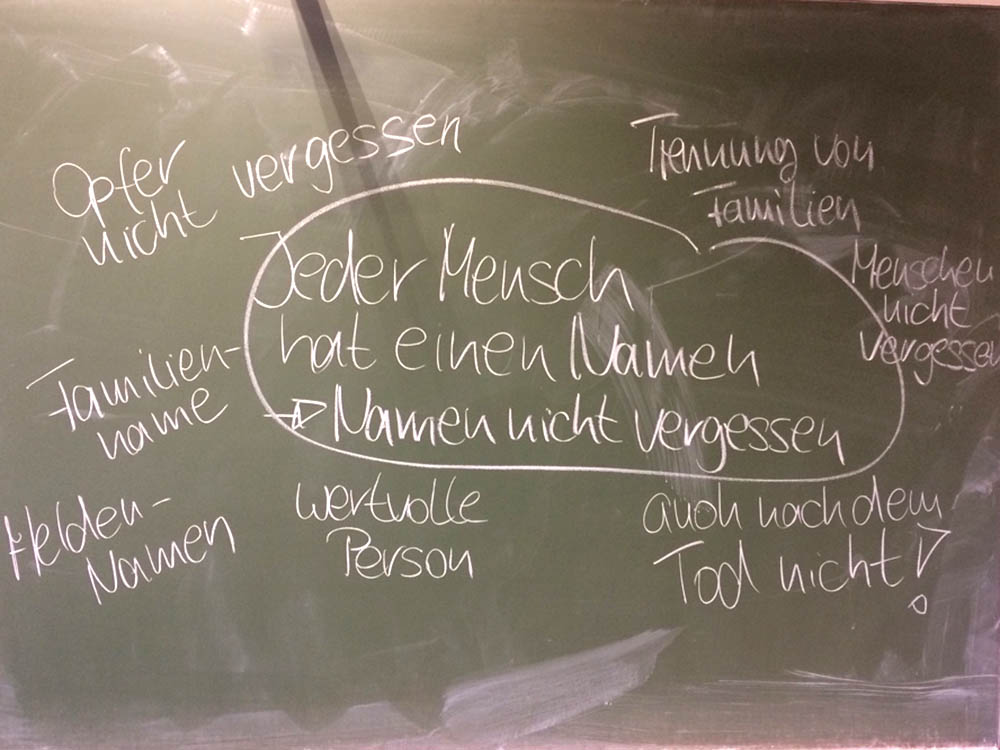 Opfer
nicht vergessen
Trennung von
Familien
Jeder Mensch
hat einen Namen
→ Namen nicht vergessen
Menschen
nicht
vergessen
Familien-
name
Helden-
Namen
wertvolle
Person
auch nach dem
Tod nicht!